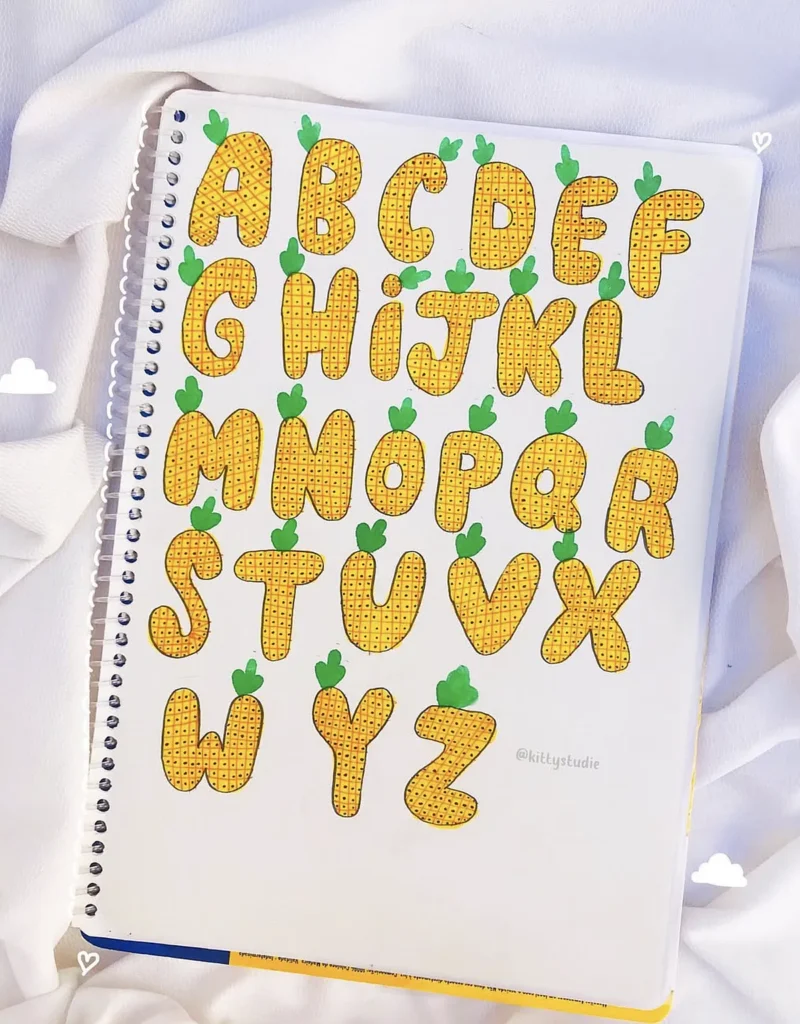 A B C D E F
G H i J K L
M N O P Q R
S T U V X
W Y Z
@kittystudie